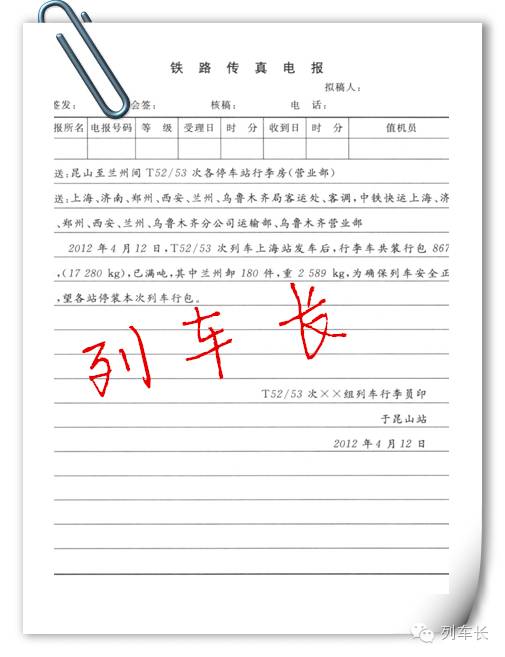 铁路传真电报
拟稿人：
签发： 会签： 核稿： 电话：
报所名 电报号码 等级 受理日 时分 收到日 时分 值机员
送：昆山至兰州间 T52/53 次各停车站行李房(营业部)
送：上海、济南、郑州、西安、兰州、乌鲁木齐局客运处、客调，中铁快运上海、济
、郑州、西安、兰州、乌鲁木齐分公司运输部、乌鲁木齐营业部
2012 年 4 月 12 日，T52/53 次列车上海站发车后，行李车共装行包 867
，(17 280 kg)，已满吨，其中兰州卸 180 件，重 2 589 kg，为确保列车安全正
，望各站停装本次列车行包。
列车长
T52/53 次××组列车行李员印
于昆山站
2012 年 4 月 12 日
列车长